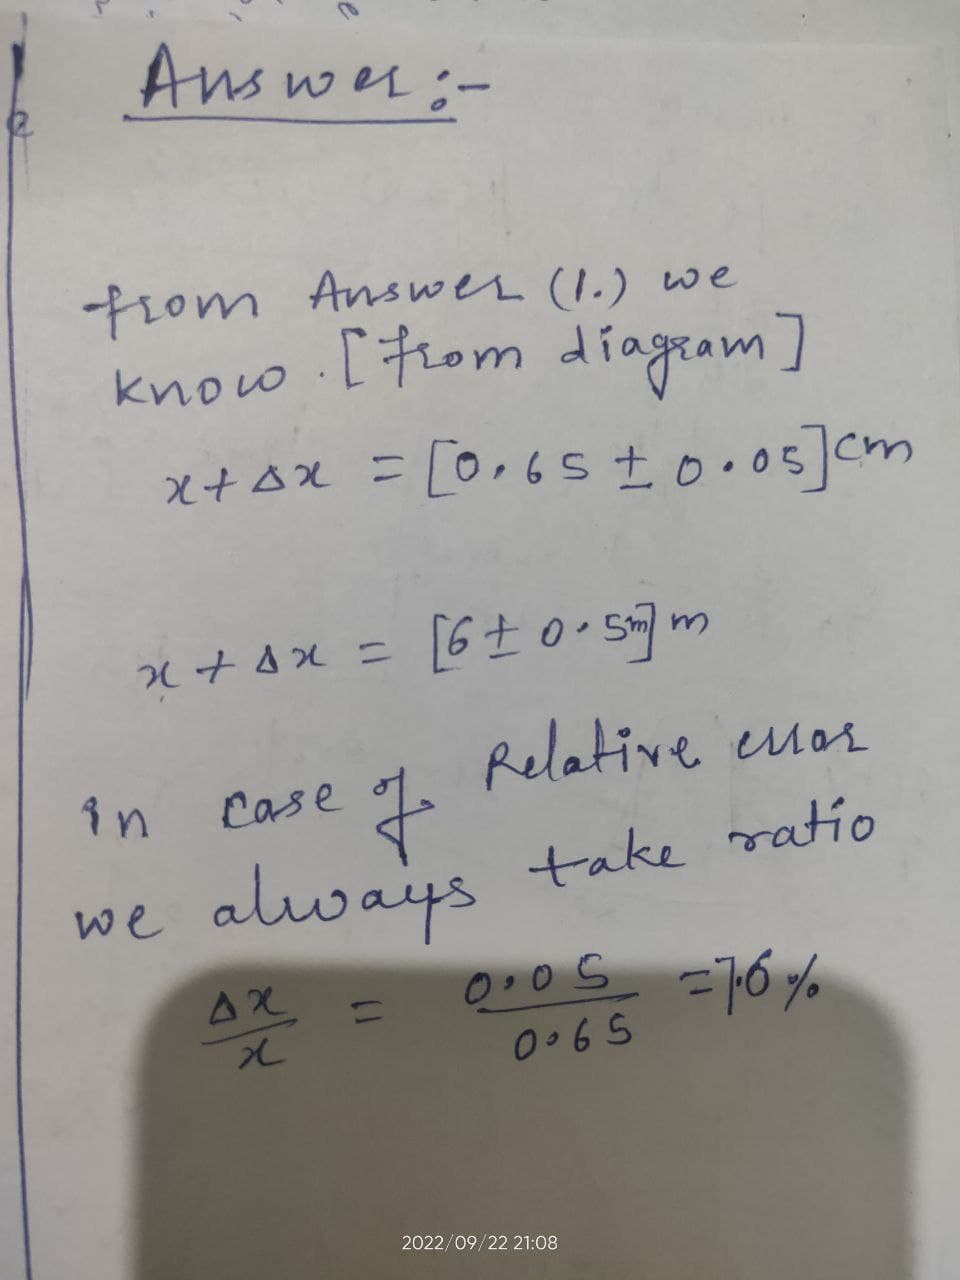 Answer :-
from Answer (1.) we
know . [from diagram]
x + Δx = [0.65 ± 0.05] cm
x + Δx = [6 ± 0.5m] m
in case of Relative error
we always take ratio
Δx/x = 0.05/0.65 = 7.6 %
2022/09/22 21:08